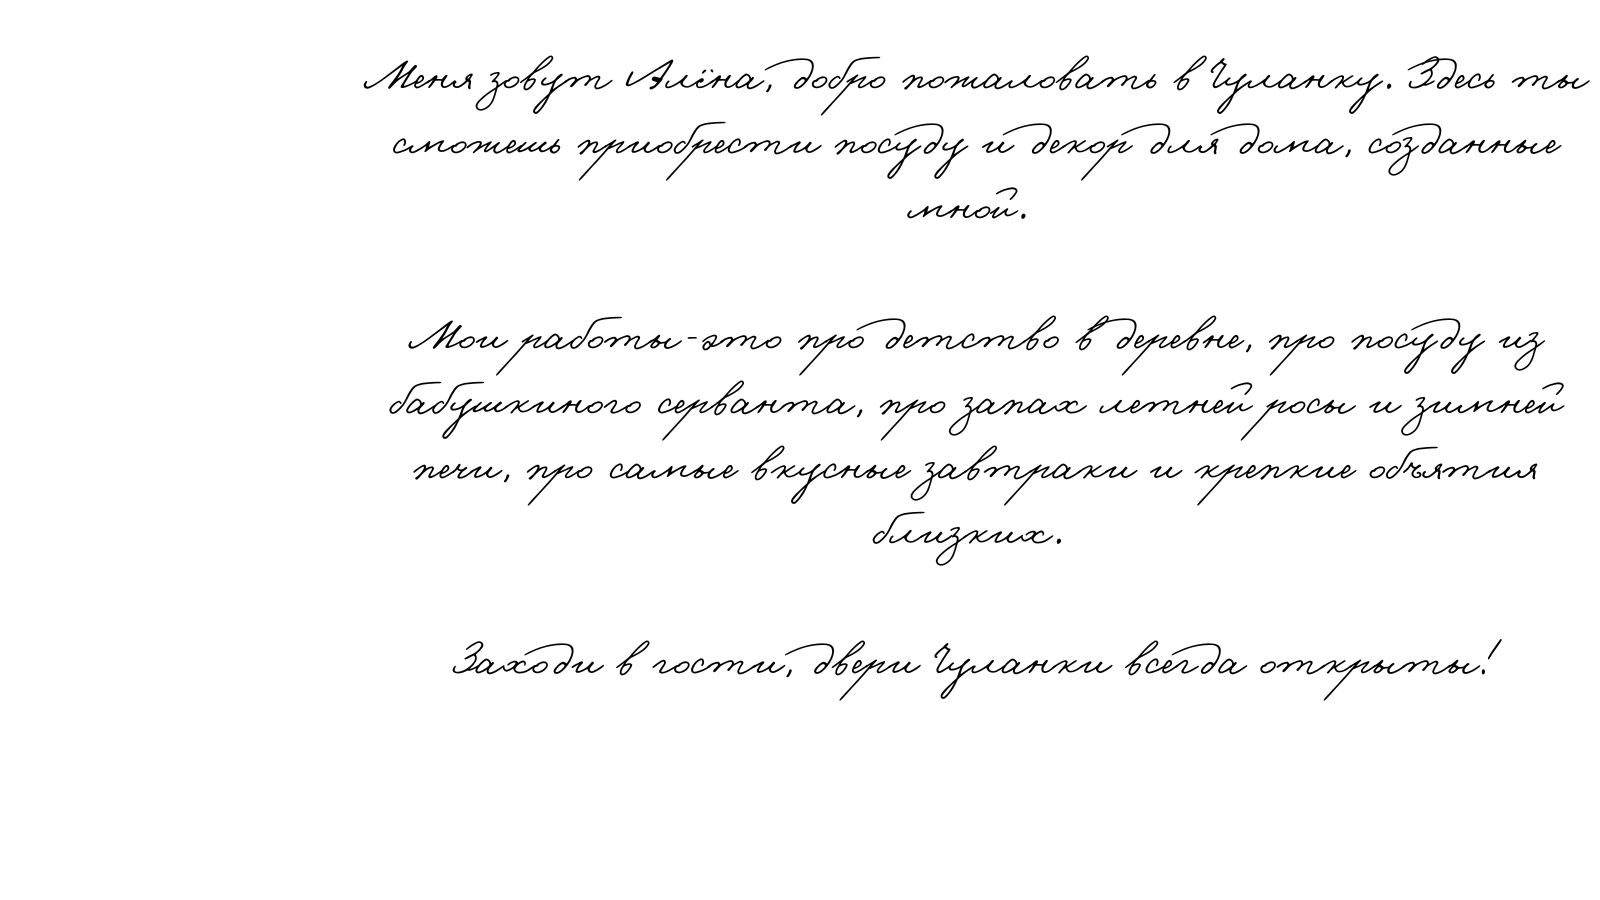 Меня зовут Алёна, добро пожаловать в Чуланку. Здесь ты
сможешь приобрести посуду и декор для дома, созданные
мной.
Мои работы-это про детство в деревне, про посуду из
бабушкиного серванта, про запах летней росы и зимней
печи, про самые вкусные завтраки и крепкие объятия
близких.
Заходи в гости, двери Чуланки всегда открыты!